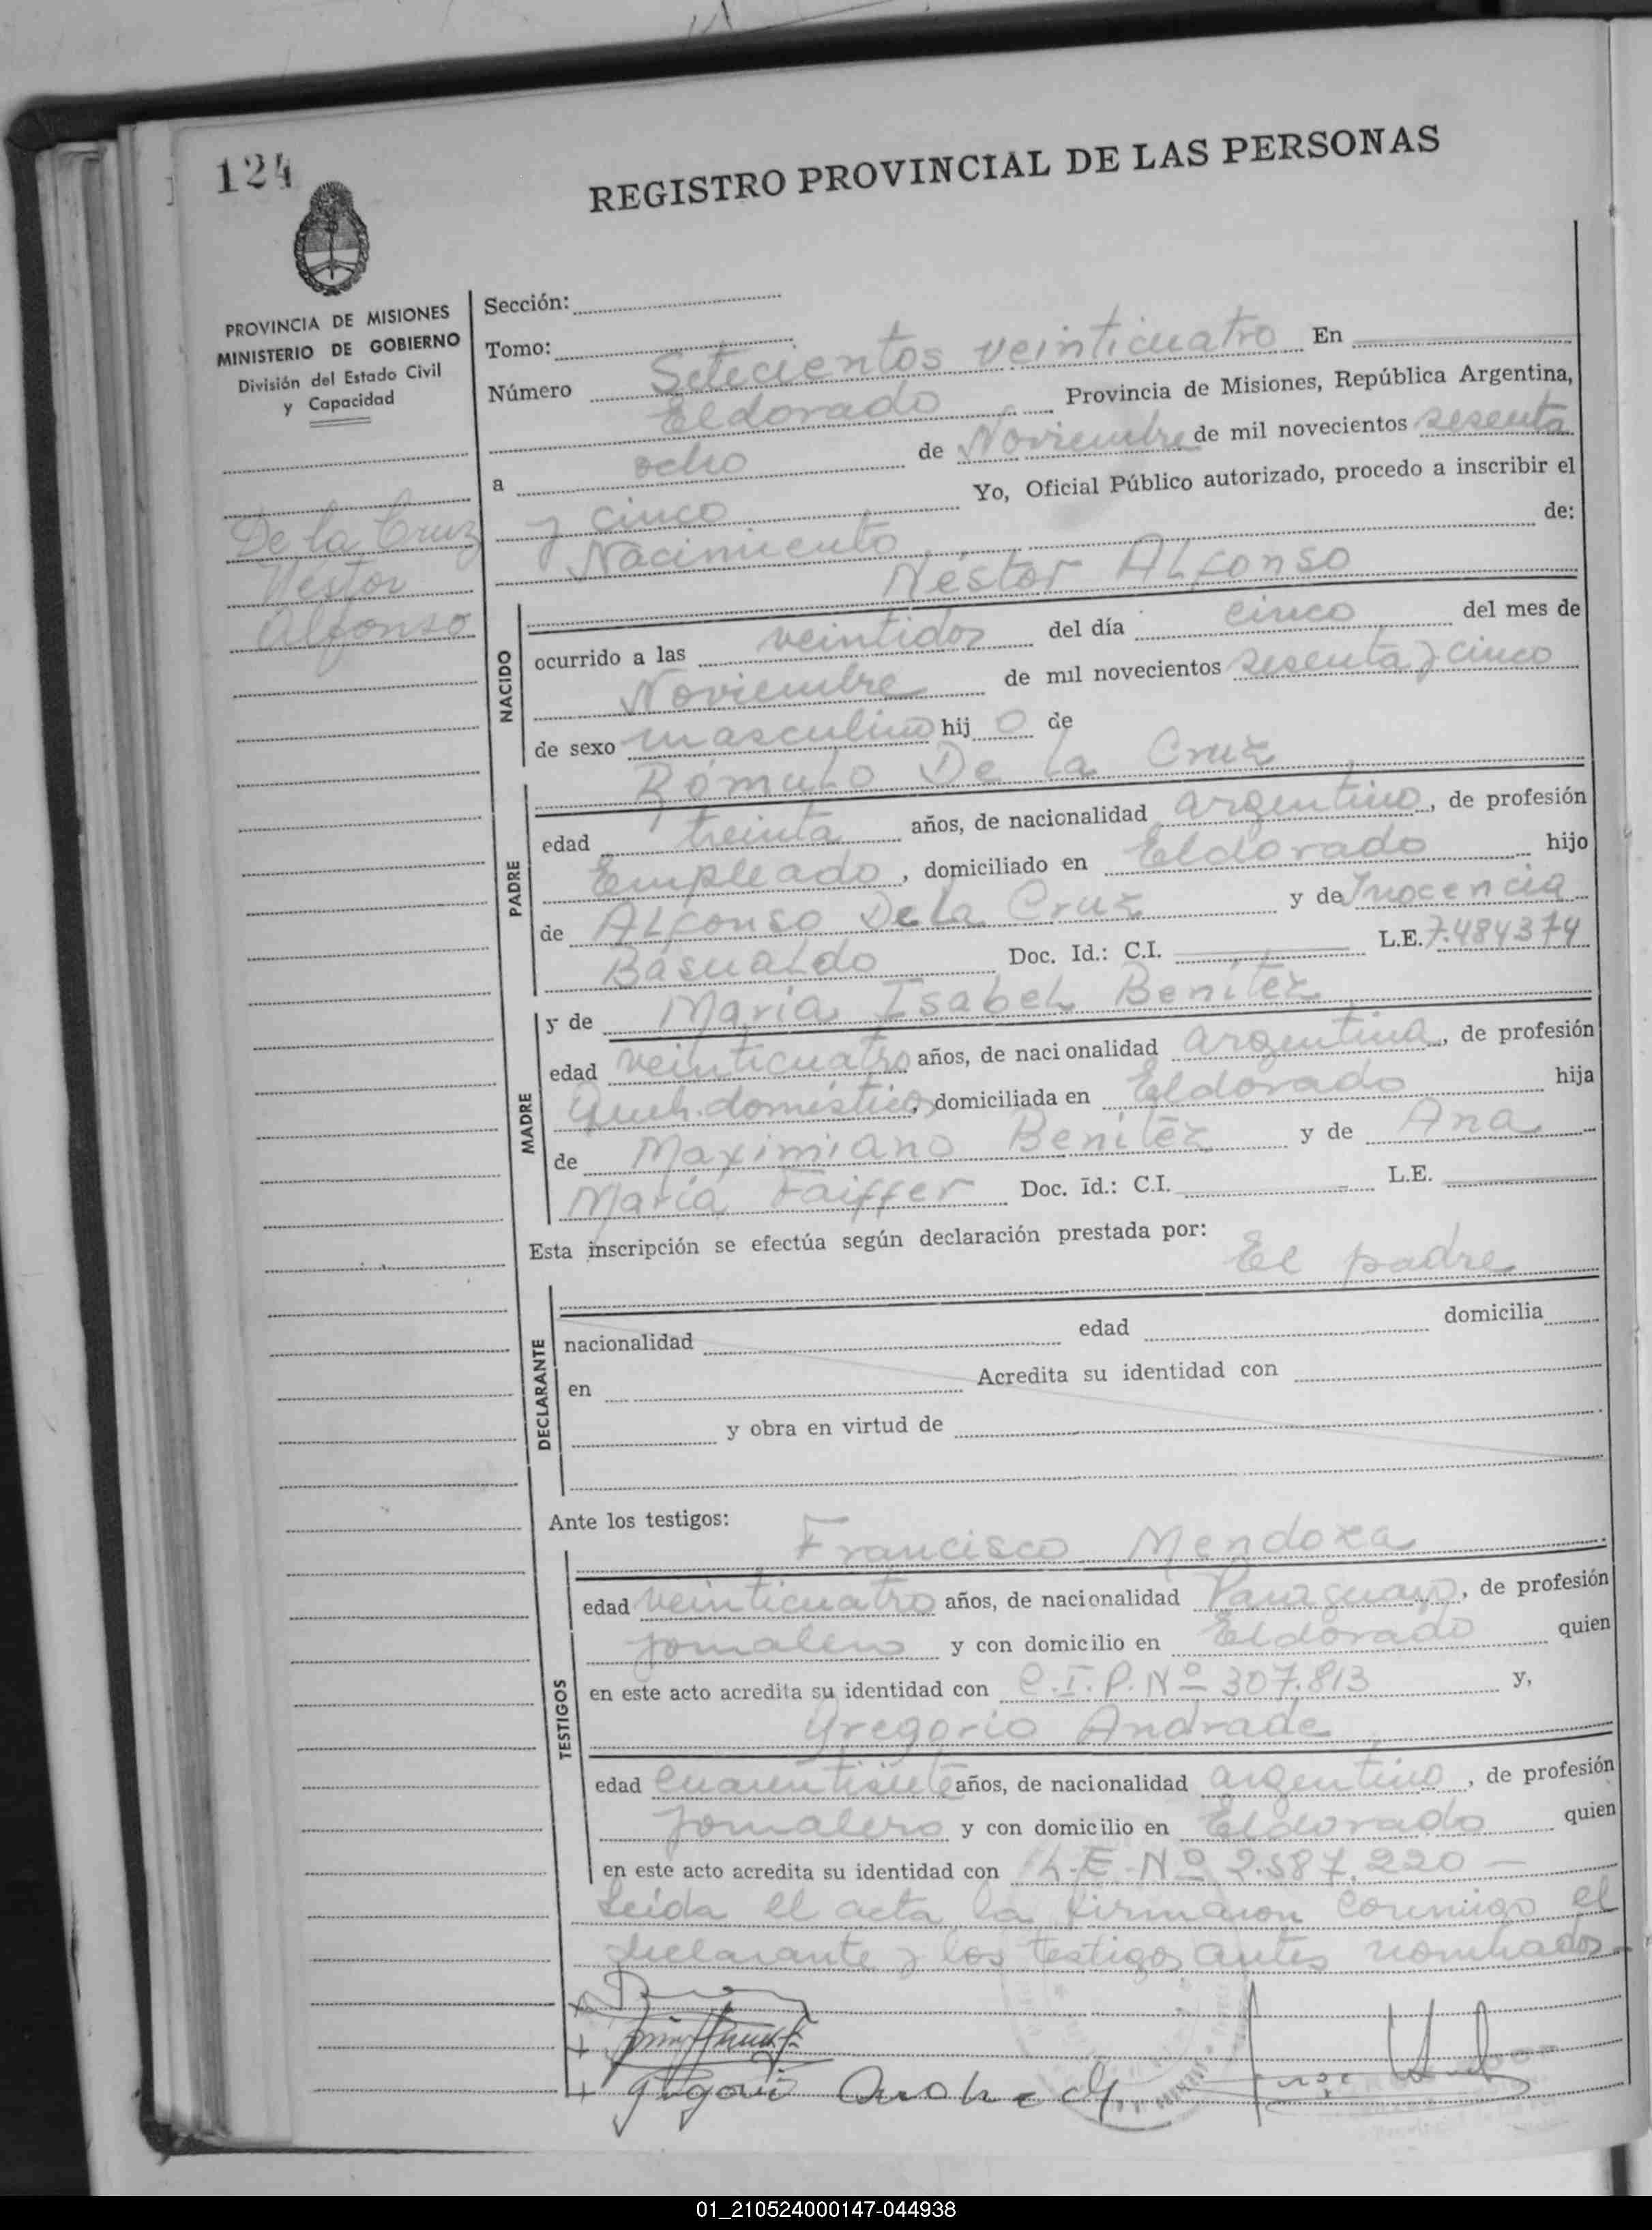 124
REGISTRO PROVINCIAL DE LAS PERSONAS
PROVINCIA DE MISIONES
MINISTERIO DE GOBIERNO
División del Estado Civil
y Capacidad
De la Cruz
Nestor
Alfonso
Sección:
Tomo:
Número Setecientos veinticuatro En
Eldorado Provincia de Misiones, República Argentina,
a ocho de Noviembre de mil novecientos sesenta
y cinco Yo, Oficial Público autorizado, procedo a inscribir el
Nacimiento de:
Néstor Alfonso
NACIDO
ocurrido a las veintidos del día cinco del mes de
Noviembre de mil novecientos sesenta y cinco
de sexo masculino hij o de
Rómulo De la Cruz
PADRE
edad treinta años, de nacionalidad argentino, de profesión
Empleado, domiciliado en Eldorado hijo
de Alfonso De la Cruz y de Inocencia
Basualdo Doc. Id.: C.I. L.E. 7.484374
MADRE
y de María Isabel Benítez
edad veinticuatro años, de naci onalidad argentina, de profesión
Queh. domésticos, domiciliada en Eldorado hija
de Maximiano Benítez y de Ana
María Faiffer Doc. id.: C.I. L.E.
Esta inscripción se efectúa según declaración prestada por:
El padre
DECLARANTE
nacionalidad edad domicilia
en Acredita su identidad con
y obra en virtud de
Ante los testigos:
Francisco Mendoza
TESTIGOS
edad veinticuatro años, de nacionalidad Paraguayo, de profesión
jornalero y con domicilio en Eldorado quien
en este acto acredita su identidad con C.I.P. Nº 307.813 y,
Gregorio Andrade
edad cuarentisiete años, de nacionalidad argentino, de profesión
jornalero y con domicilio en Eldorado quien
en este acto acredita su identidad con L.E. Nº 2.587.220 —
Leída el acta la firmaron conmigo el
declarante y los testigos antes nombrados.
01_210524000147-044938